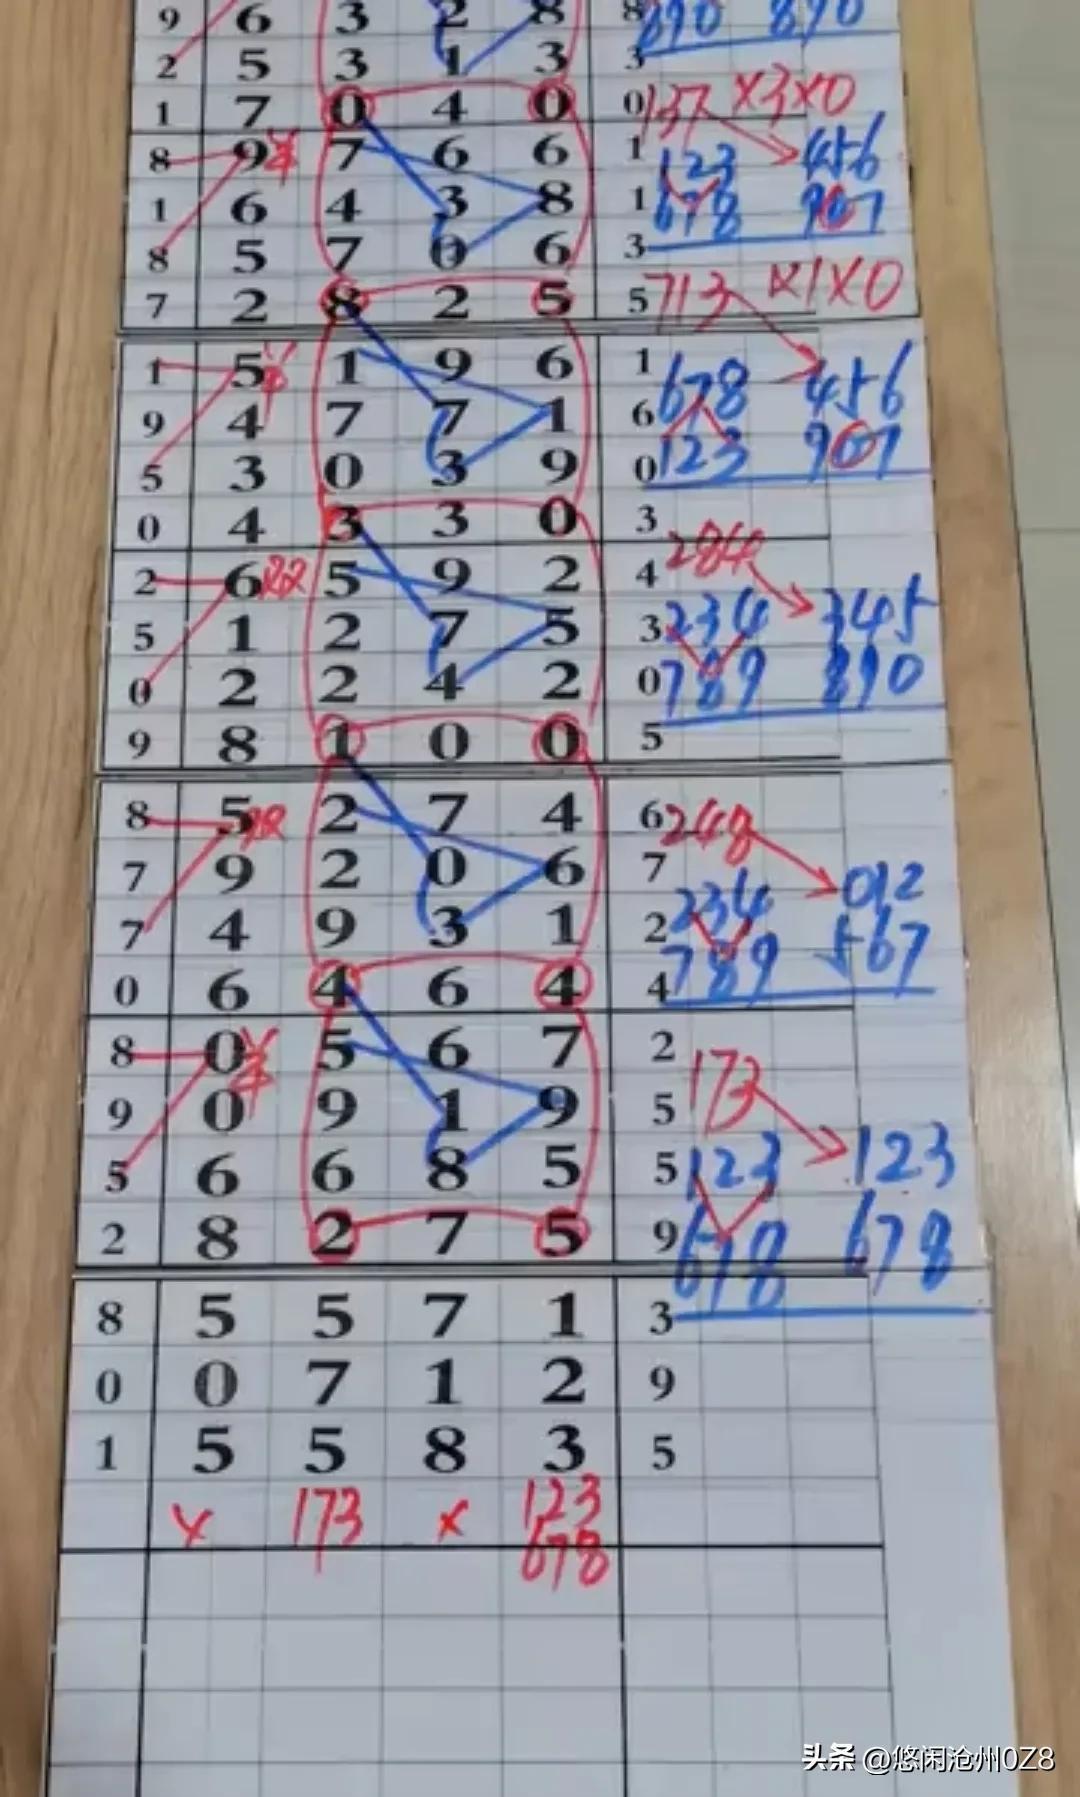 9 6 3 2 8 8 890 890
2 5 3 1 3 3
1 7 0 4 0 0 137 ×3×0
8 9 7 6 6 1 123 456
1 6 4 3 8 1 678 907
8 5 7 0 6 3
7 2 8 2 5 5 713 ×1×0
1 5 1 9 6 1 678 456
9 4 7 7 1 6
5 3 0 3 9 0 123 907
0 4 3 3 0 3
2 6 双 5 9 2 4 284
5 1 2 7 5 3 234 345
0 2 2 4 2 0 789 890
9 8 1 0 0 5
8 5 双 2 7 4 6 248
7 9 2 0 6 7 234 012
7 4 9 3 1 2 789 567
0 6 4 6 4 4
8 0 5 6 7 2 173
9 0 9 1 9 5
5 6 6 8 5 5 123 123
2 8 2 7 5 9 678 678
8 5 5 7 1 3
0 0 7 1 2 9
1 5 5 8 3 5
× 173 × 123
678
头条 @悠闲沧州0Z8